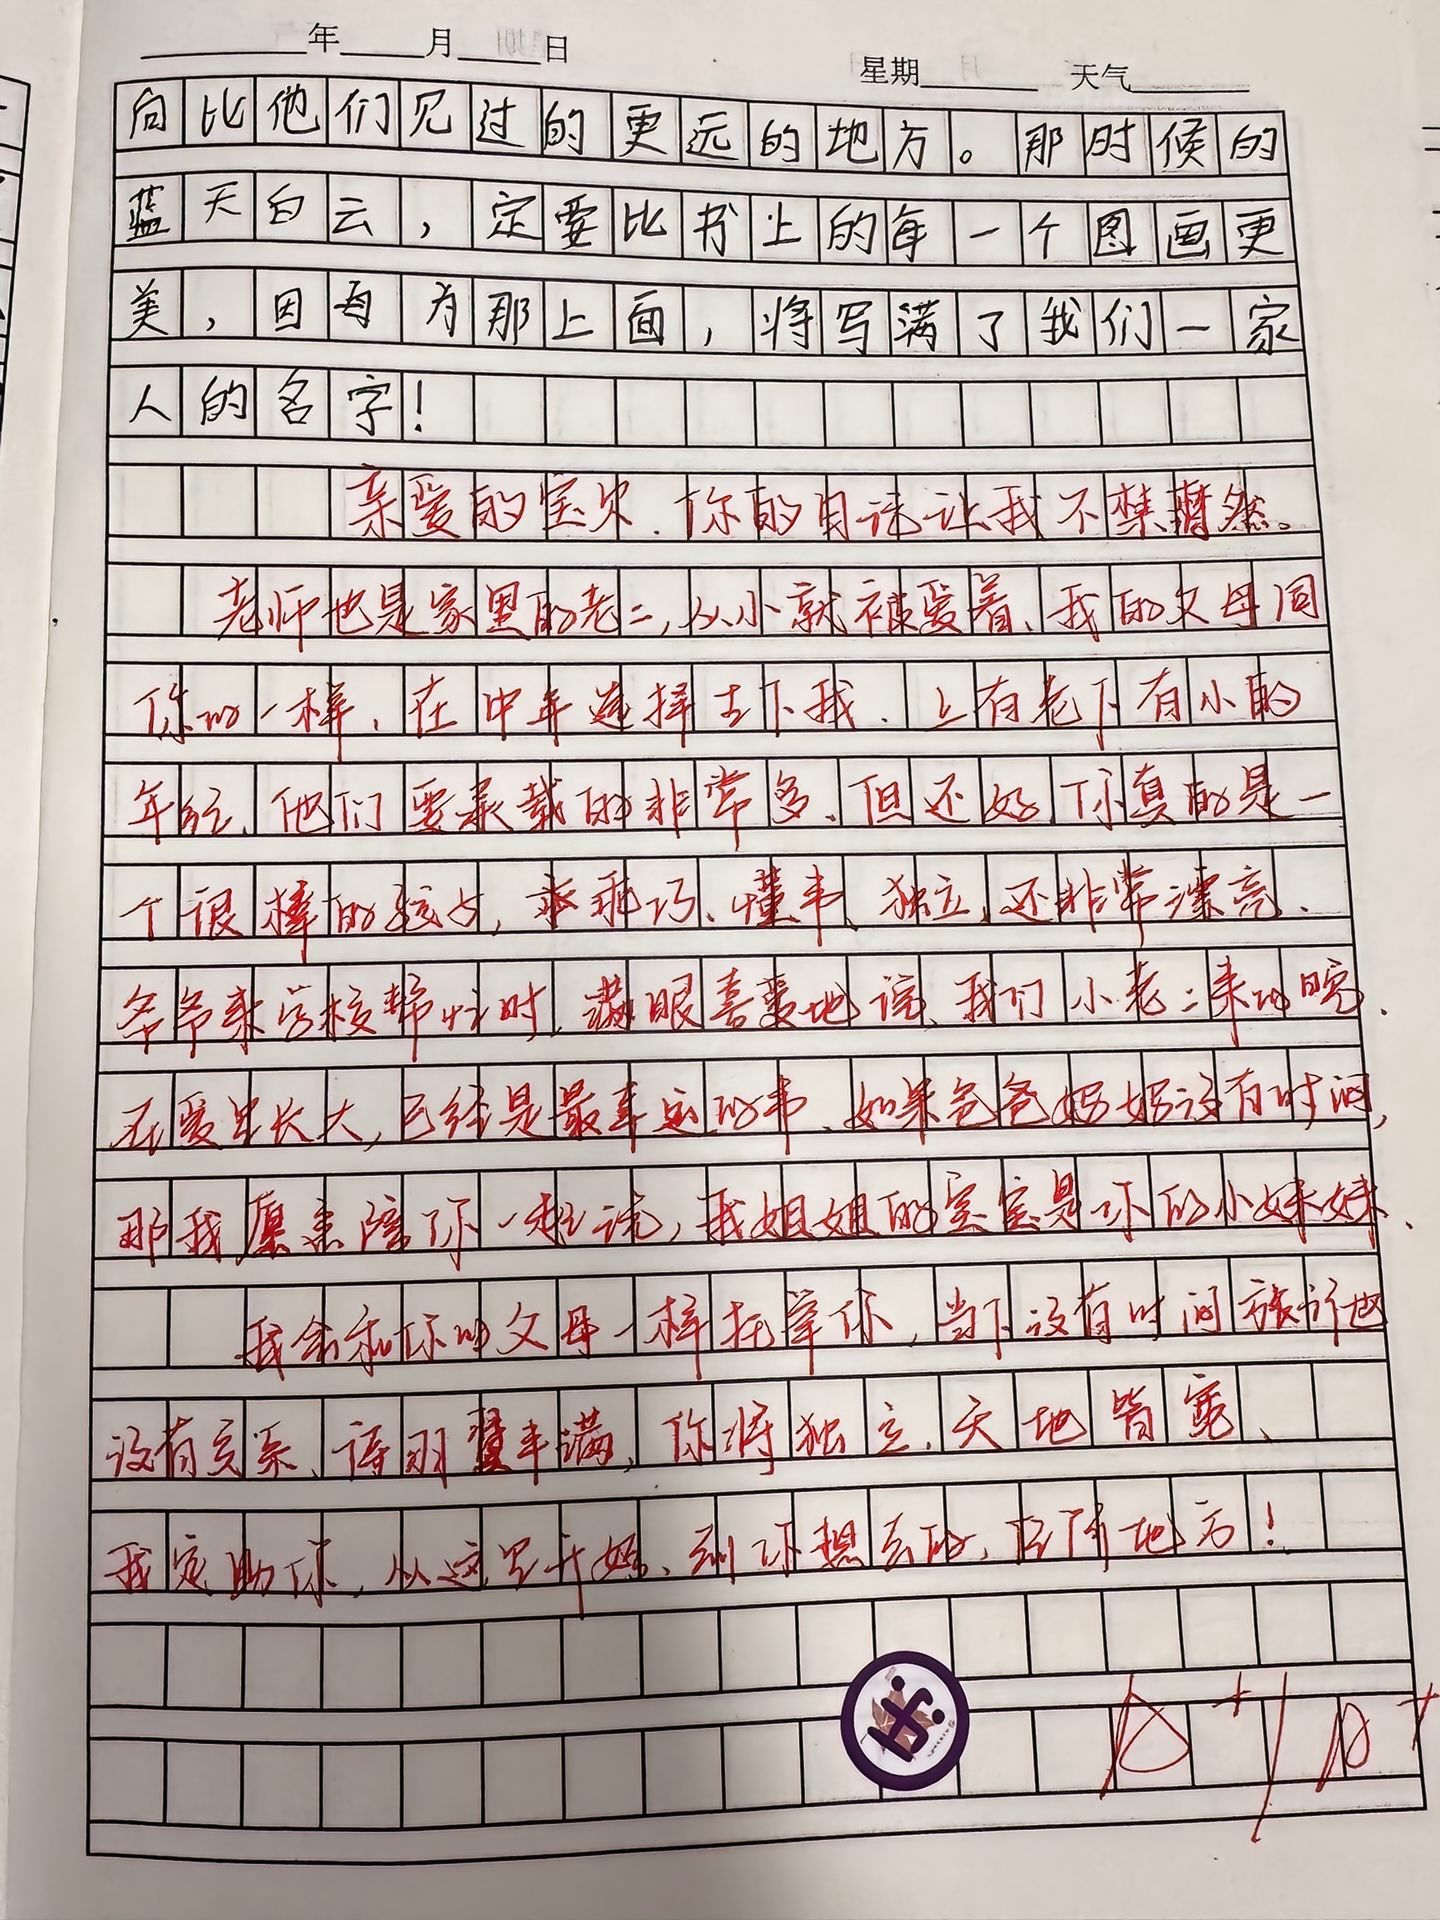 年 月 日 星期 天气
向比他们见过的更远的地方。那时候的
蓝天白云，定要比书上的每一个图画更
美，因每为那上面，将写满了我们一家
人的名字！
亲爱的宝贝，你的日记让我不禁潸然。
老师也是家里的老二，从小就被爱着、我的父母同
你的一样，在中年选择生下我、上有老下有小的
年纪、他们要承载的非常多、但还好你真的是一
个很棒的孩子，乖乖巧、懂事、独立，还非常漂亮、
爷爷来学校帮忙时，满眼喜爱地说、我们小老二来的晚、
在爱里长大，已经是最幸运的事、如果爸爸妈妈没有时间，
那我愿意陪你一起玩，我姐姐的宝宝是你的小妹妹、
我会和你的父母一样托举你，当下没有时间旅行也
没有关系、待羽翼丰满，你将独立，天地皆宽、
我定助你，从这里开始、到你想去的，任何地方！
A+/A+